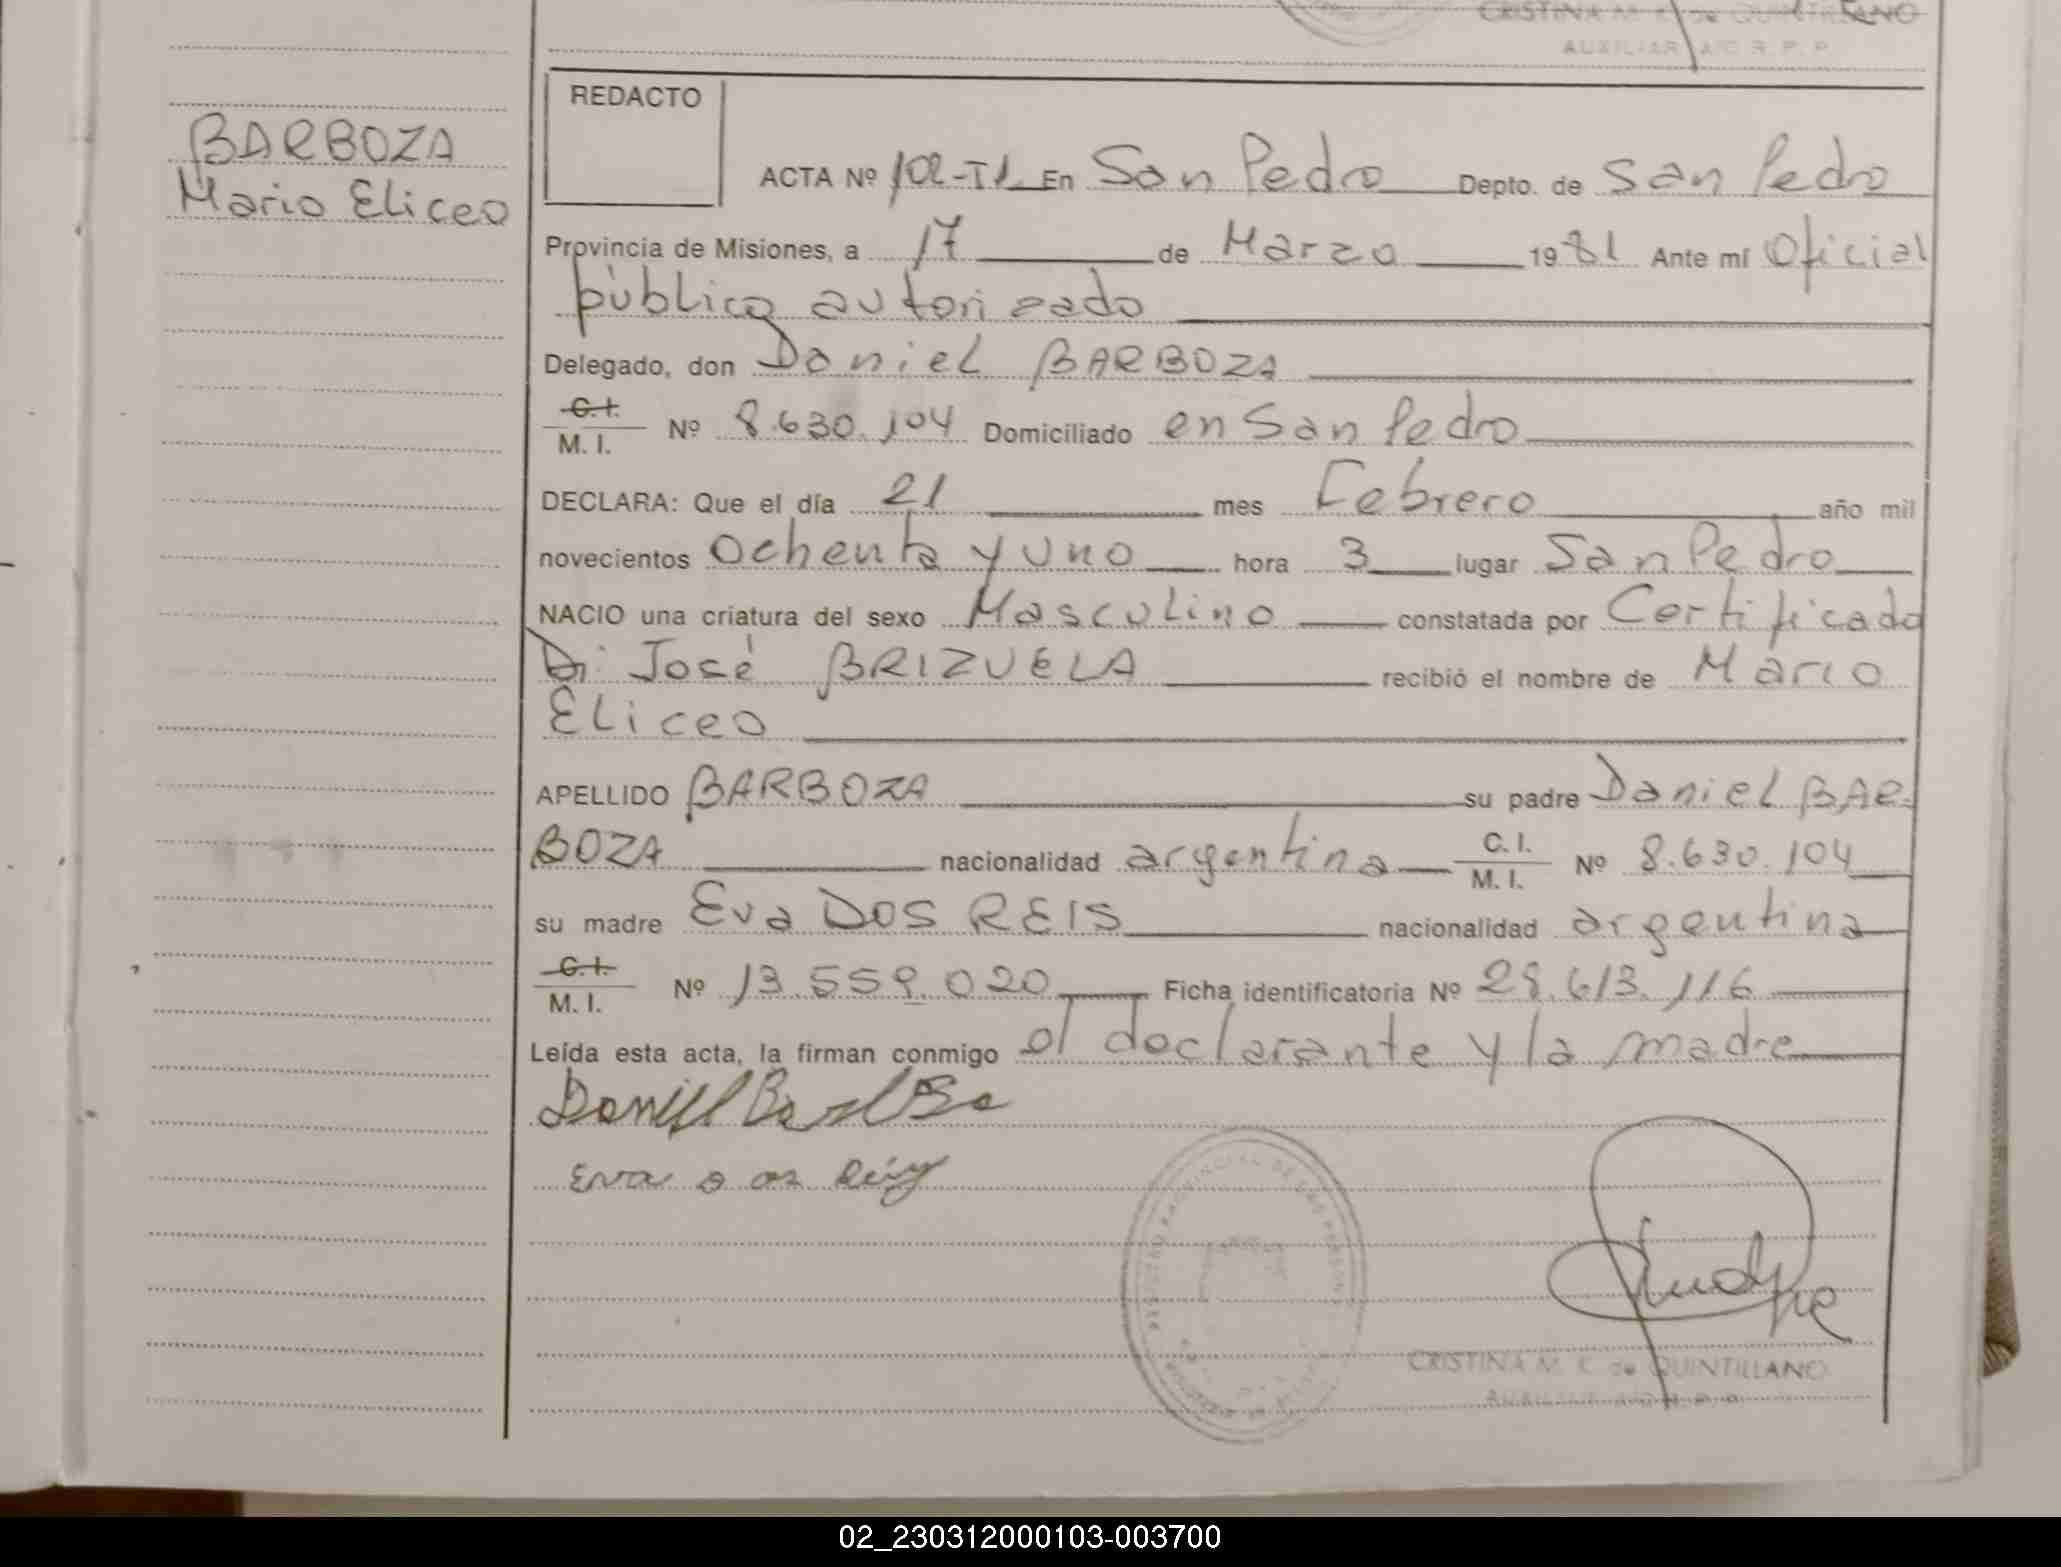 CRISTINA M. C. de QUINTILLANO
AUXILIAR A/C R. P. P.
BARBOZA
Mario Eliceo
REDACTO
ACTA Nº 102-T1 En San Pedro Depto. de San Pedro
Provincia de Misiones, a 17 de Marzo 1981 Ante mí Oficial
público autorizado
Delegado, don Daniel BARBOZA
C. I.
M. I. Nº 8.630.104 Domiciliado en San Pedro
DECLARA: Que el día 21 mes Febrero año mil
novecientos Ochenta y uno hora 3 lugar San Pedro
NACIO una criatura del sexo Masculino constatada por Certificado
Di José BRIZUELA recibió el nombre de Mario
Eliceo
APELLIDO BARBOZA su padre Daniel BAR-
BOZA nacionalidad argentina C. I. M. I. Nº 8.630.104
su madre Eva DOS REIS nacionalidad argentina
C. I.
M. I. Nº 13.559.020 Ficha identificatoria Nº 28.613.116
Leída esta acta, la firman conmigo el declarante y la madre
CRISTINA M. C. de QUINTILLANO
02_230312000103-003700